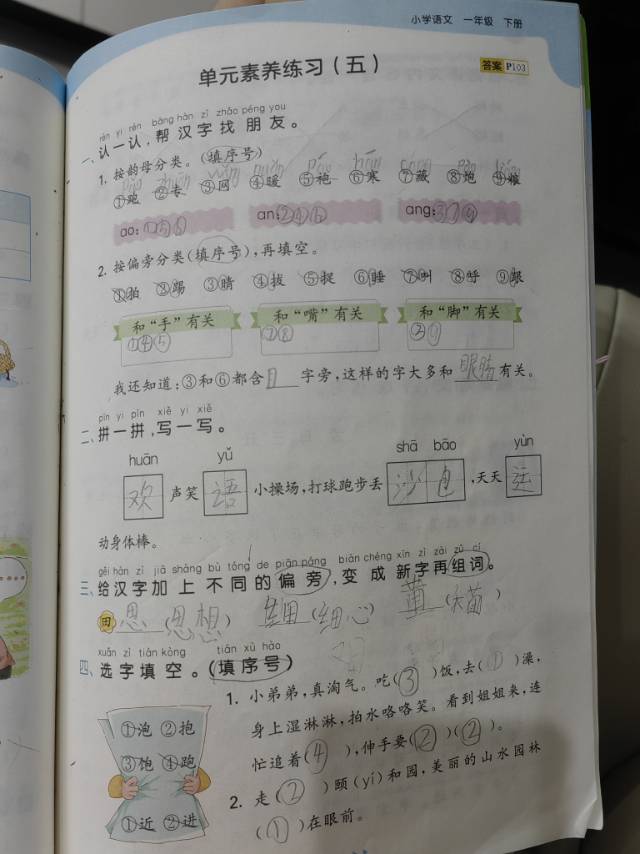 小学语文 一年级 下册
单元素养练习(五)
答案 P103
rèn yi rèn bāng hàn zì zhǎo péng you
一、认一认,帮汉字找朋友。
1. 按韵母分类。(填序号)
①跑 ②专 ③网 ④暖 ⑤袍 ⑥寒 ⑦藏 ⑧炮
ao:①⑤⑧ an:②④⑥ ang:③⑦⑨
2. 按偏旁分类(填序号),再填空。
①拍 ②踢 ③睛 ④拔 ⑤捉 ⑥睡 ⑦叫 ⑧呼 ⑨跟
和“手”有关 和“嘴”有关 和“脚”有关
①④⑤ ⑦⑧ ②⑨
我还知道:③和⑥都含目字旁,这样的字大多和眼睛有关。
pīn yi pīn xiě yi xiě
二、拼一拼,写一写。
huān yǔ shā bāo yùn
欢声笑语小操场,打球跑步丢沙包,天天运
动身体棒。
gěi hàn zì jiā shàng bù tóng de piān páng biàn chéng xīn zì zài zǔ cí
三、给汉字加上不同的偏旁,变成新字再组词。
田 思(思想) 细(细心) 苗(大苗)
xuǎn zì tián kòng tián xù hào
四、选字填空。(填序号)
①泡 ②抱
③饱 ④跑
①近 ②进
1. 小弟弟,真淘气。吃(③)饭,去(①)澡,
身上湿淋淋,拍水咯咯笑。看到姐姐来,连
忙追着(④),伸手要(②)(②)。
2. 走(②)颐(yí)和园,美丽的山水园林
(①)在眼前。